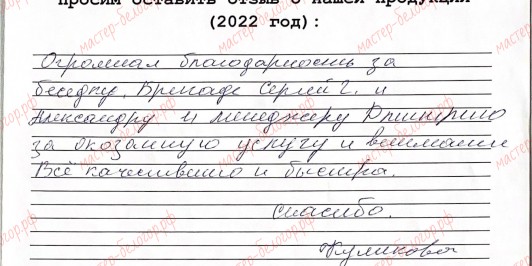 просим оставить отзыв о нашей продукции
(2022 год):
Огромная благодарность за
беседку. Бригаде Сергей Г. и
Александру и менеджеру Дмитрию
за оказанную услугу и внимание
Всё качественно и быстро.
спасибо.
Куликова
мастер-белогор.рф